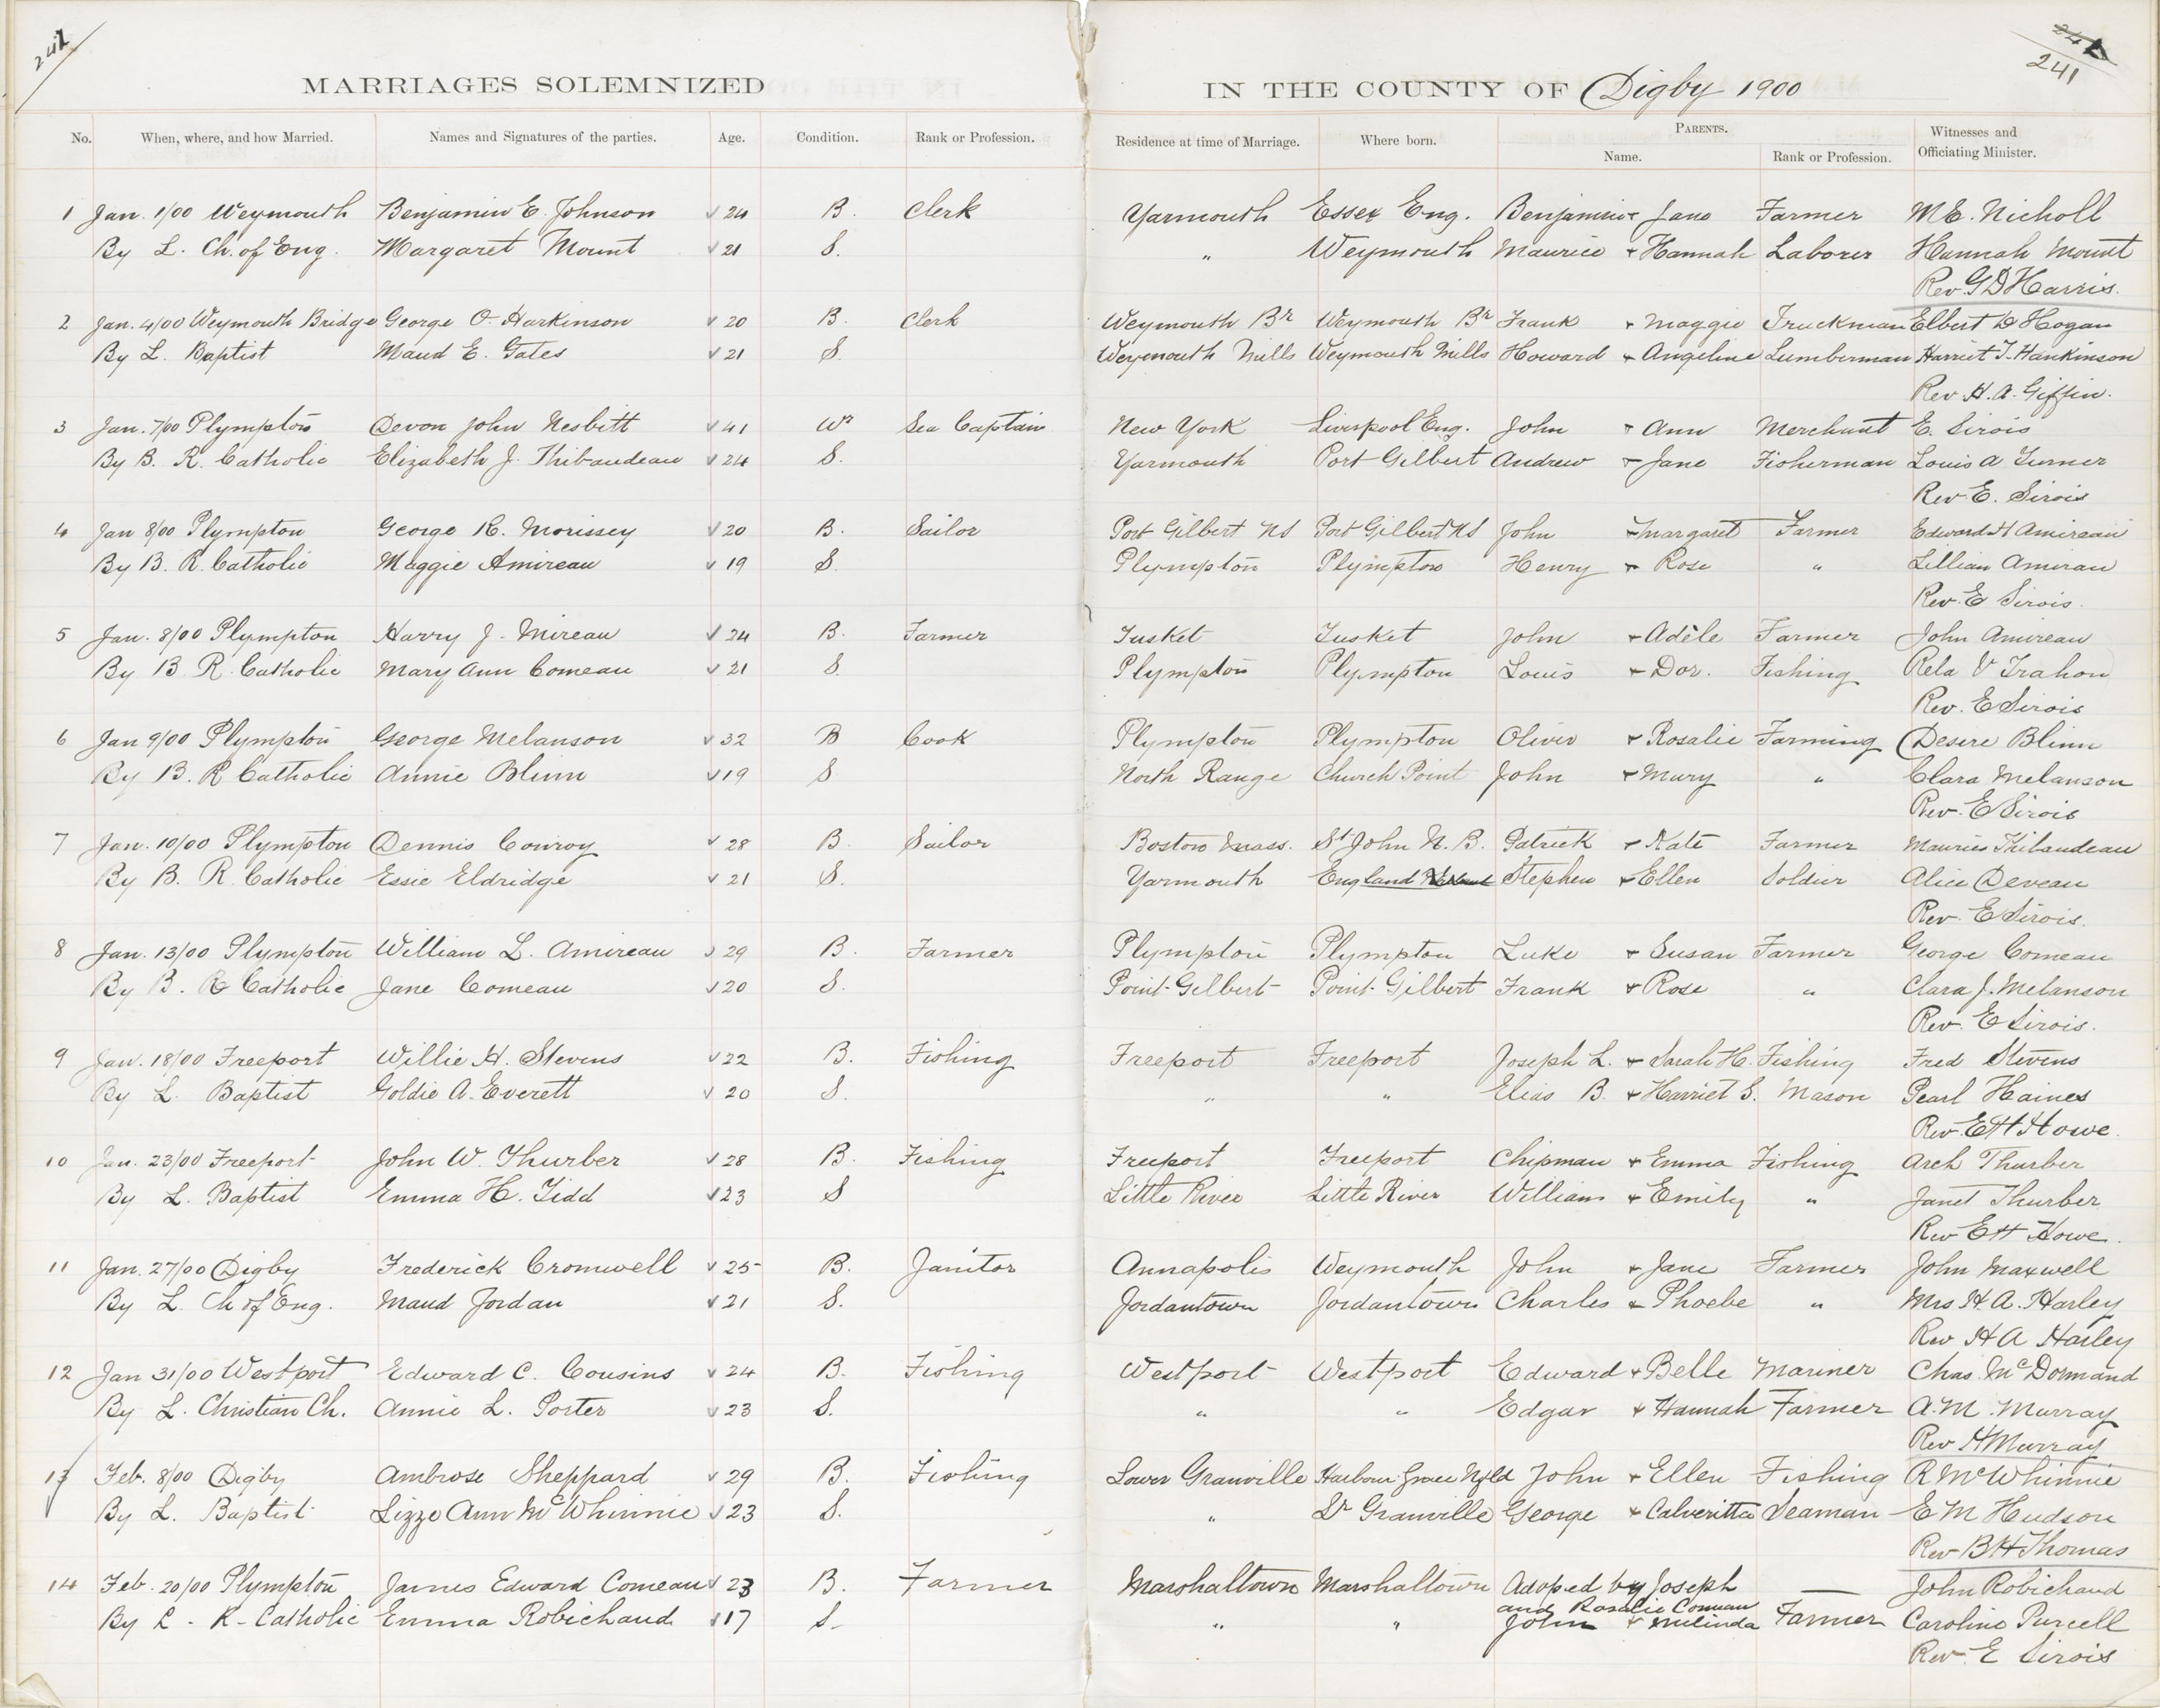 241
241
MARRIAGES SOLEMNIZED IN THE COUNTY OF Digby 1900
No. When, where, and how Married. Names and Signatures of the parties. Age. Condition. Rank or Profession. Residence at time of Marriage. Where born. PARENTS. Name. Rank or Profession. Witnesses and Officiating Minister.
1 Jan. 1/00 Weymouth Benjamin E. Johnson 24 B. Clerk Yarmouth Essex Eng. Benjamin + Jane Farmer M.E. Nicholl
By L. Ch. of Eng. Margaret Mount 21 S. " Weymouth Maurice + Hannah Laborer Hannah Mount
Rev. G D Harris.
2 Jan. 4/00 Weymouth Bridge George O. Harkinson 20 B. Clerk Weymouth Br Weymouth Br Frank + Maggie Truckman Elbert D Hogan
By L. Baptist Maud E. Gates 21 S. Weymouth Mills Weymouth Mills Howard + Angeline Lumberman Harriet T. Hankinson
Rev. H. A. Giffin.
3 Jan. 7/00 Plympton Devon John Nesbitt 41 Wr Sea Captain New York Liverpool Eng. John + Ann Merchant E. Sirois
By B. R. Catholic Elizabeth J. Thibaudeau 24 S. Yarmouth Port Gilbert Andrew + Jane Fisherman Louis A Turner
Rev. E. Sirois
4 Jan 8/00 Plympton George R. Morissey 20 B. Sailor Port Gilbert NS Port Gilbert NS John + Margaret Farmer Edward H Amireau
By B. R. Catholic Maggie Amireau 19 S. Plympton Plympton Henry + Rose " Lillian Amirau
Rev. E Sirois.
5 Jan. 8/00 Plympton Harry J. Mireau 24 B. Farmer Tusket Tusket John + Adèle Farmer John Amireau
By B R. Catholic Mary Ann Comeau 21 S. Plympton Plympton Louis + Dor. Fishing Rela V Trahon
Rev. E Sirois
6 Jan 9/00 Plympton George Melanson 32 B Cook Plympton Plympton Oliver + Rosalie Farming Desire Blinn
By B. R Catholic Annie Blinn 19 S North Range Church Point John + Mary " Clara Melanson
Rev. E Sirois
7 Jan. 10/00 Plympton Dennis Conroy 28 B. Sailor Boston Mass. St John N. B. Patrick + Kate Farmer Maurice Thibaudeau
By B. R. Catholic Essie Eldridge 21 S. Yarmouth England Stephen + Ellen Soldier Alice Deveau
Rev. E Sirois.
8 Jan. 13/00 Plympton William L. Amireau 29 B. Farmer Plympton Plympton Luke + Susan Farmer George Comeau
By B. R Catholic Jane Comeau 20 S. Point Gilbert Point Gilbert Frank + Rose " Clara J. Melanson
Rev. E Sirois.
9 Jan. 18/00 Freeport Willie H. Stevens 22 B. Fishing Freeport Freeport Joseph L. + Sarah H. Fishing Fred Stevens
By L. Baptist Goldie A. Everett 20 S. " " Elias B. + Harriet S. Mason Pearl Haines
Rev. E H Howe.
10 Jan. 23/00 Freeport John W. Thurber 28 B. Fishing Freeport Freeport Chipman + Emma Fishing Arch Thurber
By L. Baptist Emma H. Tidd 23 S Little River Little River William + Emily " Janet Thurber
Rev E H Howe.
11 Jan. 27/00 Digby Frederick Cromwell 25 B. Janitor Annapolis Weymouth John + Jane Farmer John Maxwell
By L. Ch of Eng. Maud Jordan 21 S. Jordantown Jordantown Charles + Phoebe " Mrs H. A. Harley
Rev H A Harley
12 Jan 31/00 Westport Edward C. Cousins 24 B. Fishing Westport Westport Edward + Belle Mariner Chas. McDormand
By L. Christian Ch. Annie L. Porter 23 S. " " Edgar + Hannah Farmer A. M. Murray
Rev H Murray
13 Feb. 8/00 Digby Ambrose Sheppard 29 B. Fishing Lower Granville Harbour Grace Nfld John + Ellen Fishing R McWhinnie
By L. Baptist Lizze Ann McWhinnie 23 S. " Lr Granville George + Calveritta Seaman E M Hudson
Rev B H Thomas
14 Feb. 20/00 Plympton James Edward Comeau 23 B. Farmer Marshaltown Marshaltown Adoped by Joseph — John Robichaud
and Rosalie Comeau
By L. R. Catholic Emma Robichaud 17 S. " " John + Melinda Farmer Caroline Purcell
Rev. E Sirois